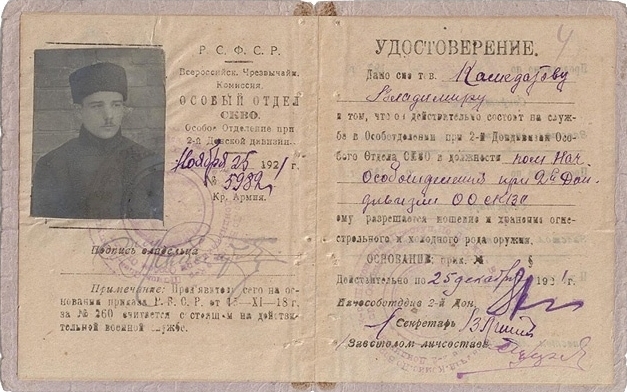 Р. С. Ф. С. Р.
Всероссийск. Чрезвычайн.
Комиссия.
ОСОБЫЙ ОТДЕЛ
СКВО.
Особое Отделение при
2-й Донской дивизии
Ноября 25 1921 г.
№ 5982
Кр. Армия.
Подпись владельца
Примечание: Пред'явитель сего на ос-
новании приказа Р. В. С. Р. от 13—XI—18 г.
за № 260 считается с остоящ м на действи-
тельной военной службе.
4
УДОСТОВЕРЕНИЕ.
Дано сие тов.
Владимиру
в том, что он действительно состоит на служ-
бе в Особотделении при 2-й Дондивизии Осо-
бого Отдела СКВО в должности пом Нач.
Особотделения при 2й Дон
дивизии ООСКВО
ему разрешается ношение и хранение огне-
стрельного и холодного рода оружия.
ОСНОВАНИЕ: прик. № §
Действительно по 25 декабря 1921 г.
Начособотд 2-й Дон.
Секретарь
Завстолом личсостава